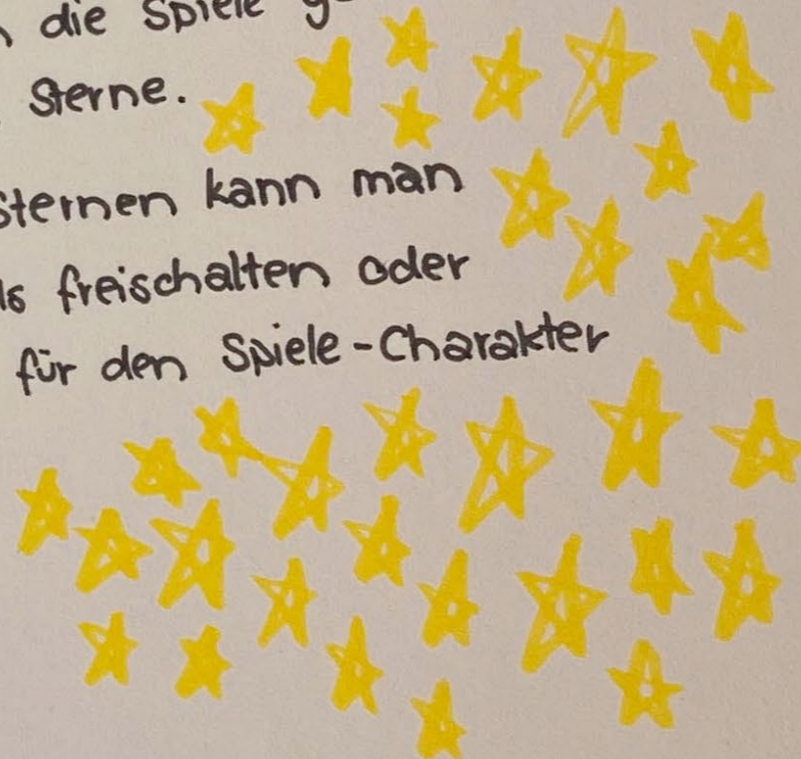 die Spiele
Sterne.
Sternen kann man
ls freischalten oder
für den Spiele-Charakter